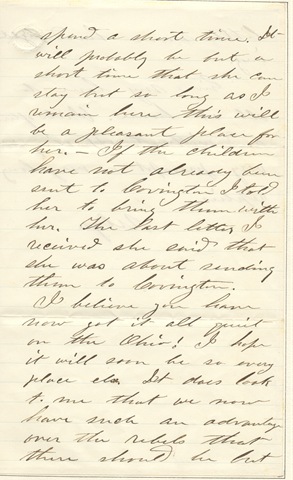 spend a short time. It
will probably be but a
short time that she can
stay but so long as I
remain here this will
be a pleasant place for
her. – If the children
have not already been
sent to Covington I told
her to bring them with
her. The last letter I
received she said that
she was about sending
them to Covington.
I believe you have
now got it all quiet
on the Ohio! I hope
it will soon be so every
place else. It does look
to me that we now
have such an advantage
over the rebels that
there should be but